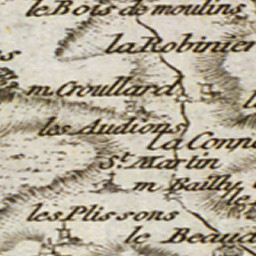 le Bois de moulins
la Robinier
m. Croullard
les Audions
la Conn
St. Martin
m Bailly
le
les Plissons
le Beaud